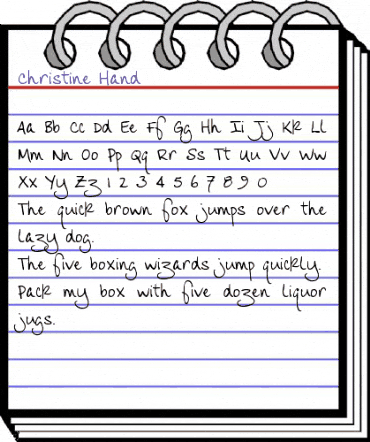 Christine Hand
Aa Bb Cc Dd Ee Ff Gg Hh Ii Jj Kk Ll
Mm Nn Oo Pp Qq Rr Ss Tt Uu Vv Ww
Xx Yy Zz 1 2 3 4 5 6 7 8 9 0
The quick brown fox jumps over the
Lazy dog.
The five boxing wizards jump quickly.
Pack my box with five dozen liquor
jugs.